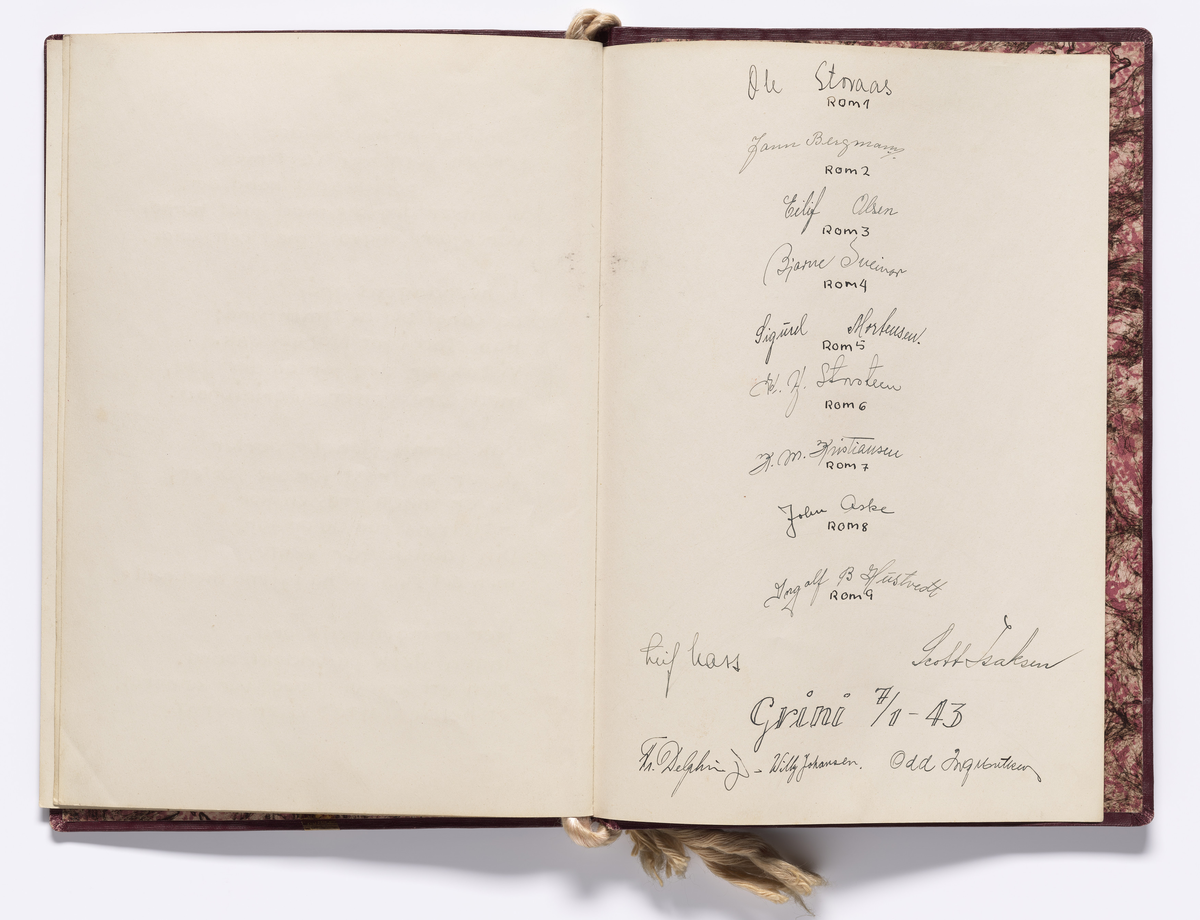 Ole Storaas
Rom 1
Bergmann
Rom 2
Eilif Olsen
Rom 3
Bjarne Sveinar
Rom 4
Sigurd Mortensen.
Rom 5
Rom 6
K. M. Kristiansen
Rom 7
John Aske
Rom 8
Ingolf B Hustvedt
Rom 9
Leif Kass Scott Isaksen
Grini 7/1-43
Fr. Delphin Jr - Willy Johansen. Odd